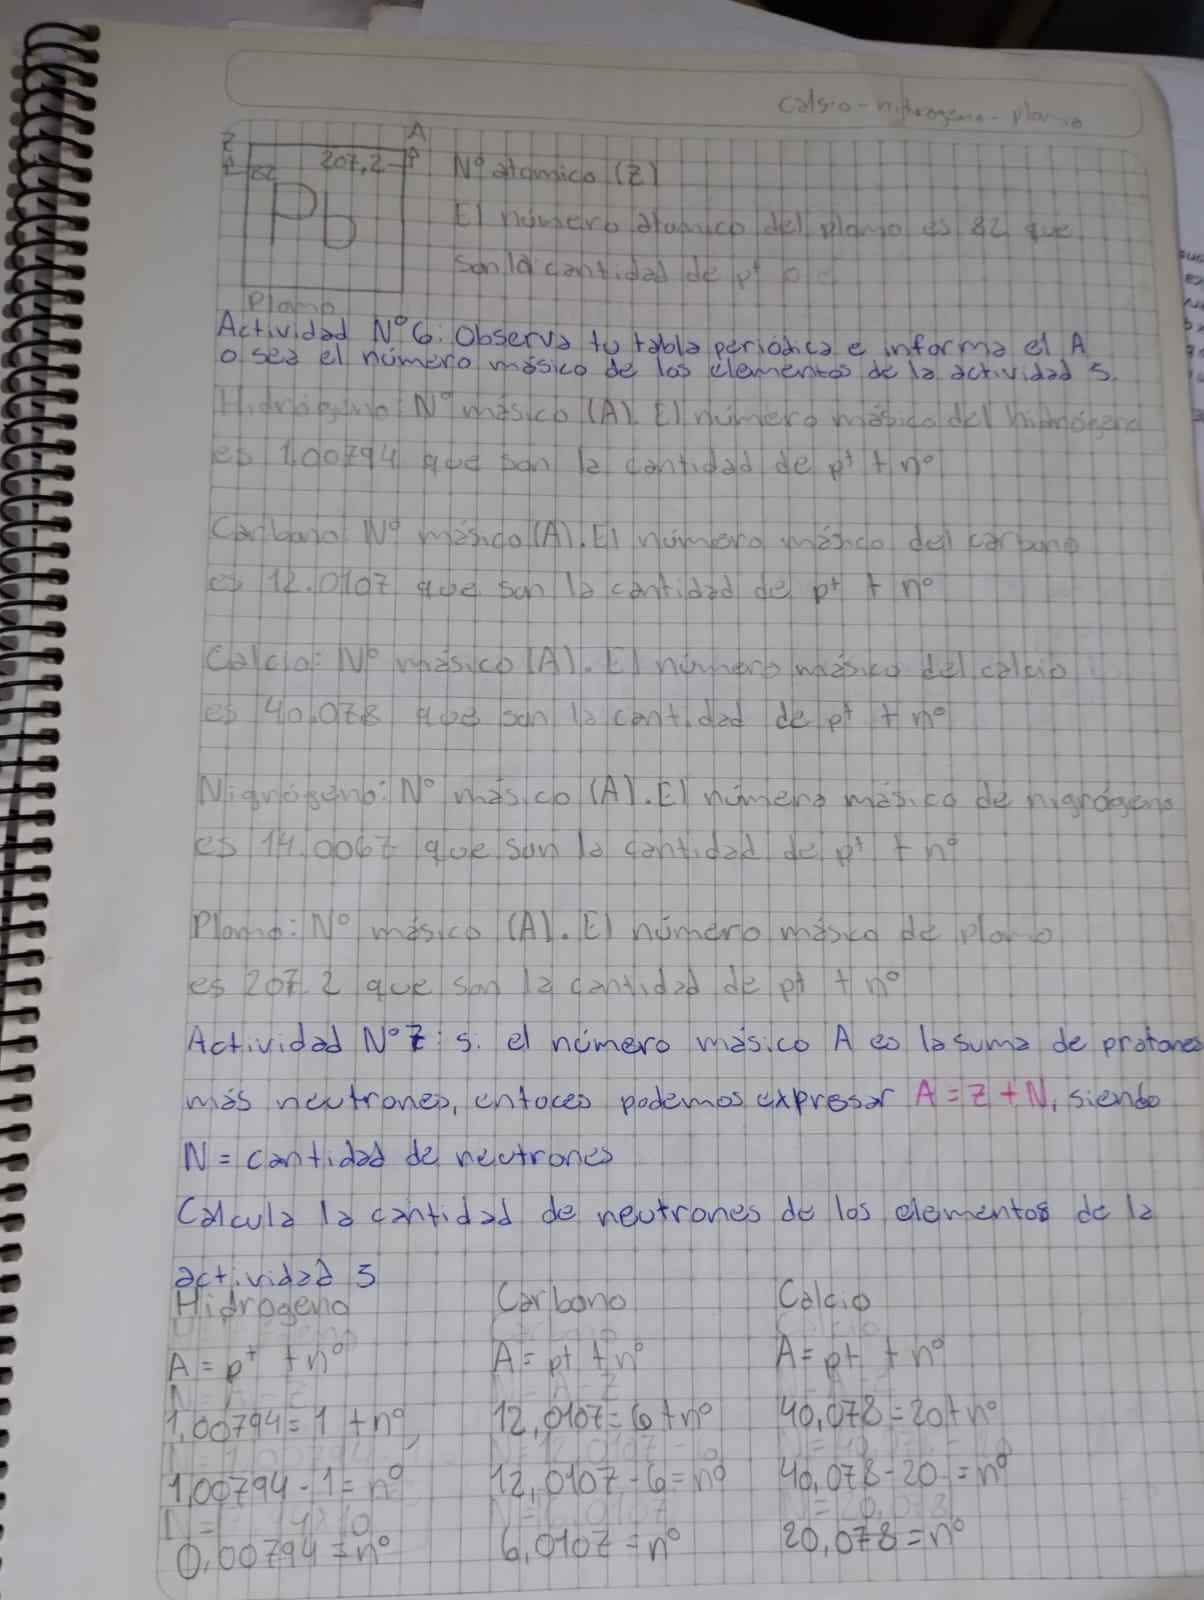 calsio-nitrogeno-plomo
Z A
82 207,2 Nº atomico (Z)
Pb El número atomico del plomo es 82 que
son la cantidad de p+ o
Plomo
Actividad Nº6: Observa tu tabla periódica e informa el A
o sea el número másico de los elementos de la actividad 5.
Hidrógeno: Nº másico (A). El número másico del hidrógeno
es 1.00794 que son la cantidad de p+ + nº
Carbono: Nº másico (A). El número másico del carbono
es 12.0107 que son la cantidad de p+ + nº
Calcio: Nº másico (A). El número másico del calcio
es 40.078 que son la cantidad de p+ + nº
Nigrógeno: Nº másico (A). El número másico de nigrógeno
es 14.0067 que son la cantidad de p+ + nº
Plomo: Nº másico (A). El número másico de plomo
es 207.2 que son la cantidad de p+ + nº
Actividad Nº7: si el número másico A es la suma de protones
más neutrones, entoces podemos expresar A=Z+N, siendo
N = cantidad de neutrones
Calcula la cantidad de neutrones de los elementos de la
actividad 5
Hidrogeno Carbono Calcio
A = p+ + nº A = p+ + nº A = p+ + nº
1,00794 = 1 + nº 12,0107 = 6 + nº 40,078 = 20 + nº
1,00794 - 1 = nº 12,0107 - 6 = nº 40,078 - 20 = nº
0,00794 = nº 6,0107 = nº 20,078 = nº